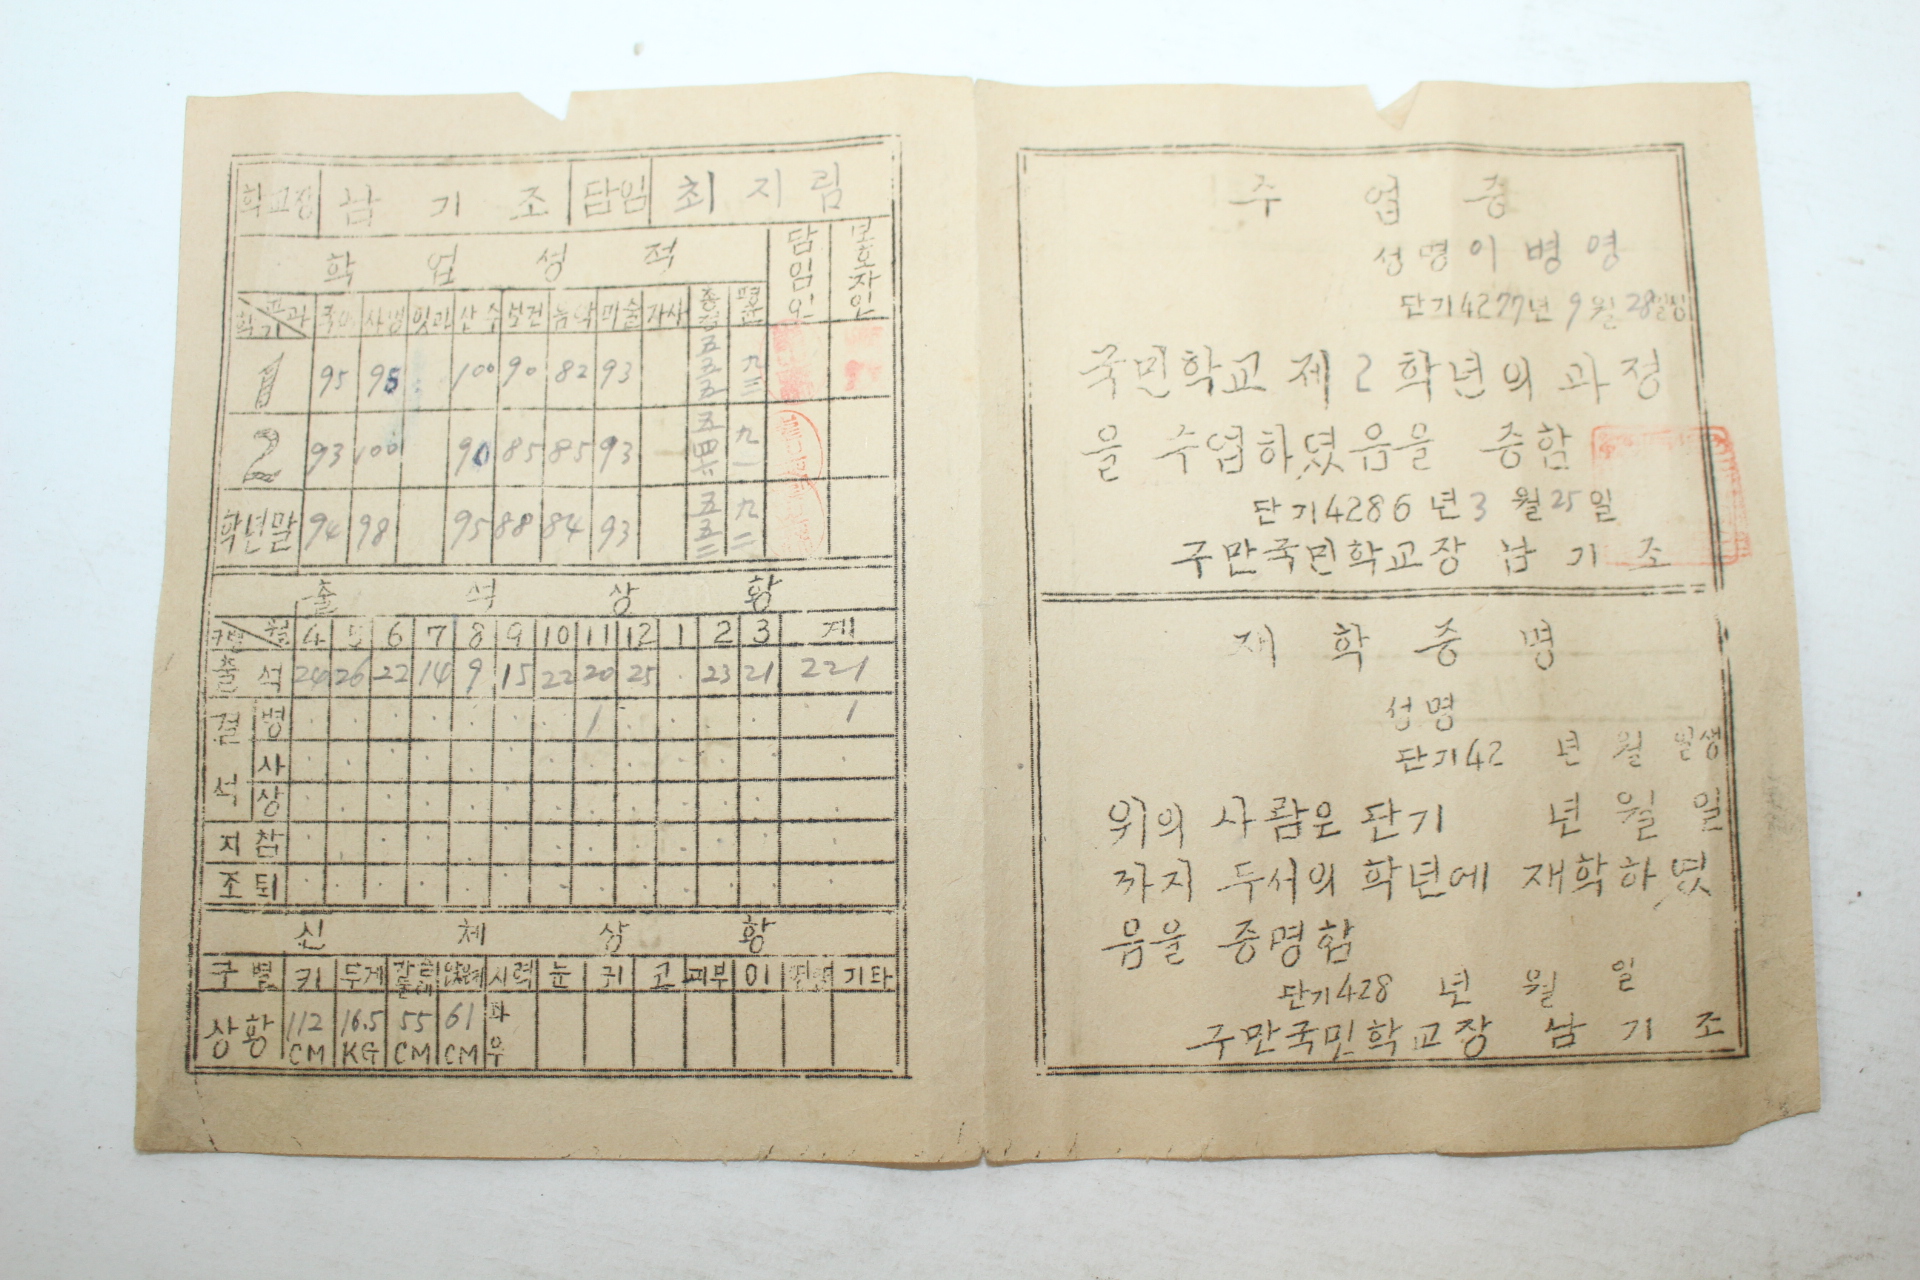 학교장 남 기 조 담임 최 지 림
학 업 성 적 담임인 보호자인
학기 교과 국어 사생 산수 보건 음악 미술 총점 평균
1 95 95 100 90 82 93 五五五 九三
2 93 100 90 85 85 93 五四六 九一
학년말 94 98 95 88 84 93 五五二 九二
출 석 상 황
구별 월 4 5 6 7 8 9 10 11 12 1 2 3 계
출석 24 26 22 14 9 15 22 20 25 23 21 221
결석 병 1 1
사
상
지참
조퇴
신 체 상 황
구별 키 무게 가슴둘레 앉은키 시력 눈 귀 코 피부 이 기타
상황 112 CM 16.5 KG 55 CM 61 CM 좌 우
수 업 증
성명 이 병 영
단기 4277년 9월 28일생
국민학교 제 2 학년의 과정
을 수업하였음을 증함
단기 4286년 3월 25일
구만국민학교장 남 기 조
재 학 증 명
성명
단기 42 년 월 일생
위의 사람은 단기 년 월 일
까지 두서의 학년에 재학하였
음을 증명함
단기 428 년 월 일
구만국민학교장 남 기 조